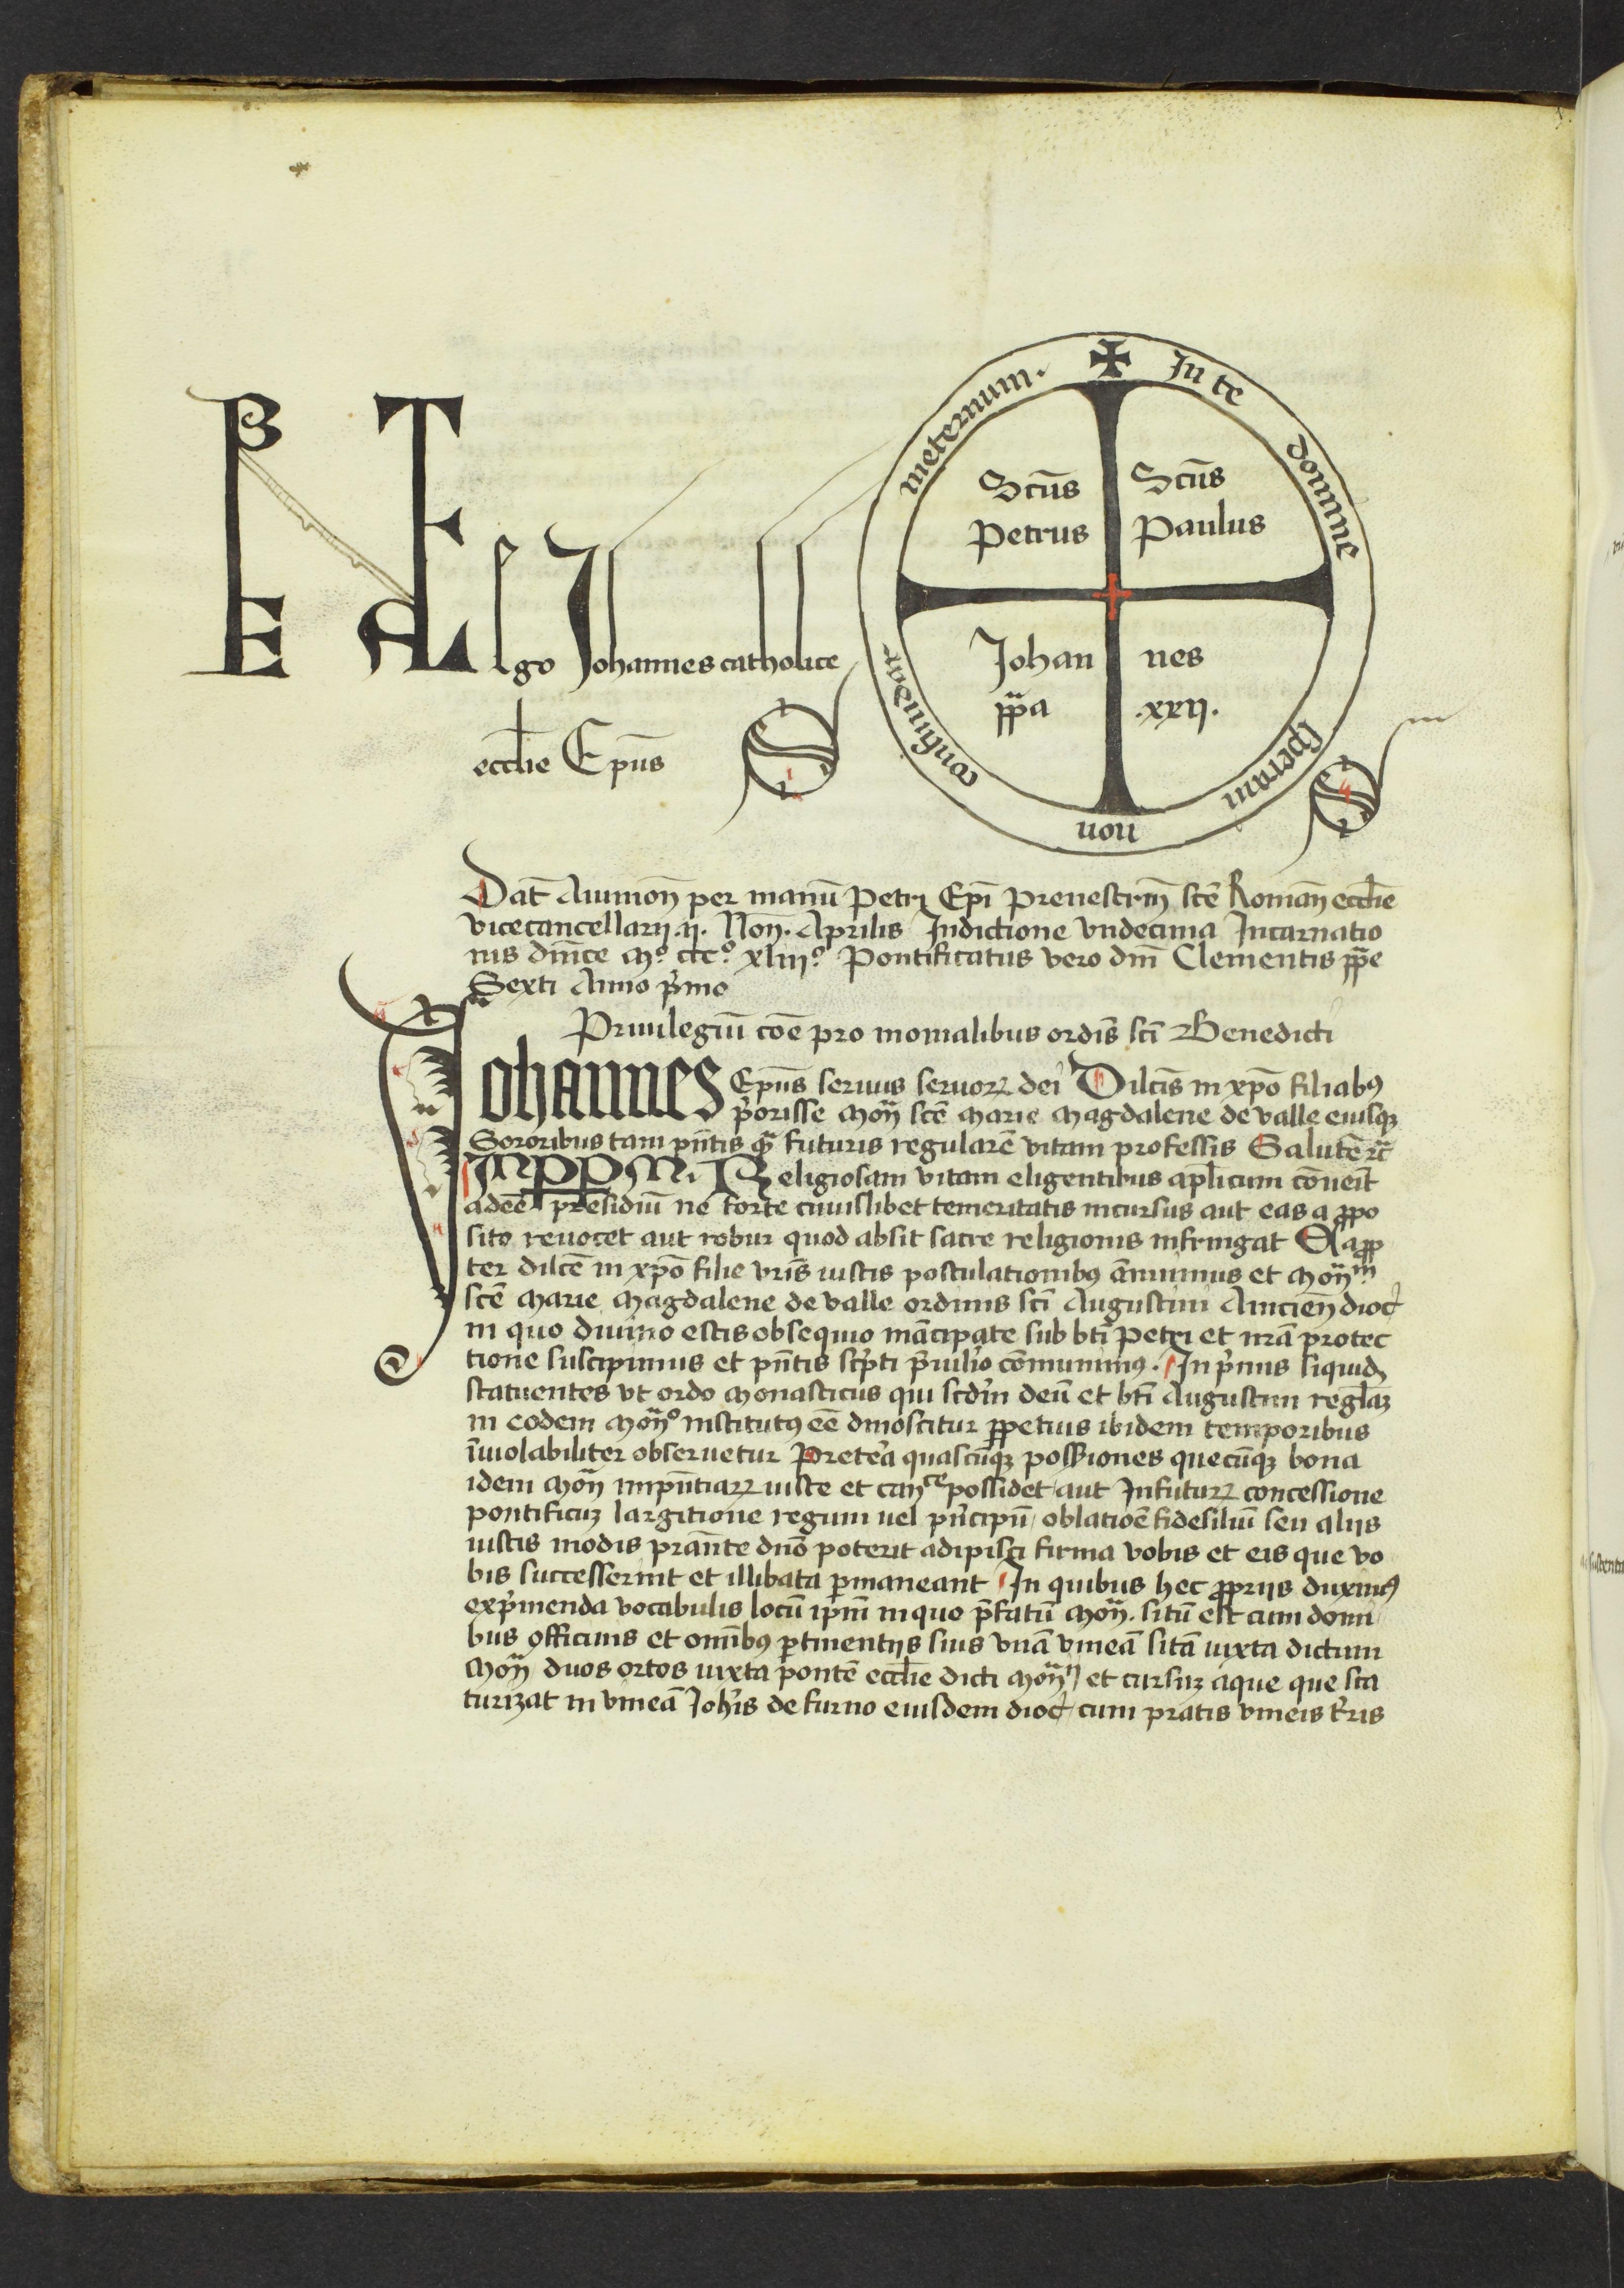 ✠ In te domine speraui non confundar ineternum.
Scūs Petrus
Scūs Paulus
Johan nes
pp̄a .xxij.
Ego Johannes catholice
eccl̄ie Ep̄us
Dat̄ Auinion̄ per manū Petri Ep̄i Prenestrin̄ sc̄e Roman̄ eccl̄ie
vicecancellarij .ij. Non̄. Aprilis Indictione vndecima Incarnatio
nis dn̄ice Mº. cccº. xliijº. Pontificatus vero dn̄i Clementis pp̄e
Sexti Anno p̄mo
Priuilegiū cōe pro monialibus ordīs sc̄i Benedicti
Johannes Ep̄us seruus seruoꝝ dei Dilc̄is in xp̄o filiabꝰ
p̄orisse Mon̄ sc̄e Marie Magdalene de valle eiusqꝫ
Sororibus tam pn̄tis qm̄ futuris regularē vitam professis Salutē ⁊c̄
INPPM. Religiosam vitam eligentibus apl̄icum cōuenit
adeē presidiū ne forte cuiuslibet temeritatis incursus aut eas a ꝓpo
sito reuocet aut robur quod absit sacre religionis infringat Eaꝓp
ter dilc̄e in xp̄o filie vr̄is iustis postulationibꝰ ānuimus et Mon̄m
sc̄e Marie Magdalene de valle ordinis sc̄i Augustini Anicien̄ dioc̄
in quo diuino estis obsequio mācipate sub bt̄i Petri et nr̄a protec
tione suscipimus et pn̄tis sc̄pti p̄uil̄io cōmunimꝰ. In p̄mis siquidꝫ
statuentes vt ordo Monasticus qui scd̄m deū et bt̄i Augustini regl̄aꝫ
in eodem Mon̄º institutꝰ eē dinoscitur ꝑpetuis ibidem temporibus
īuiolabiliter obseruetur Pretēa quascūqꝫ possiones quecūqꝫ bona
idem Mon̄ impn̄tiaꝝ iuste et cance possidet aut Infutuꝝ concessione
pontificuꝫ largitione regum uel pͥncipū oblatiōe fidesiliū seu alijs
iustis modis prān̄te dn̄o poterit adipisci firma vobis et eis que vo
bis successerint et illibata ꝑmaneant In quibus hec ꝓprijs duximꝰ
exp̄menda vocabulis locū ip̄m in quo p̄fatū Mon̄. situ est cum domi
bus officinis et om̄ibꝰ ꝑtinentijs suis vnā vineā sitā iuxta dictum
Mon̄ duos ortos iuxta pontē eccl̄ie dicti Mon̄ij et cursuꝫ aque que sca
turizat in vineā Joh̄is de furno eiusdem dioc̄ cum pratis vineis t̄ris